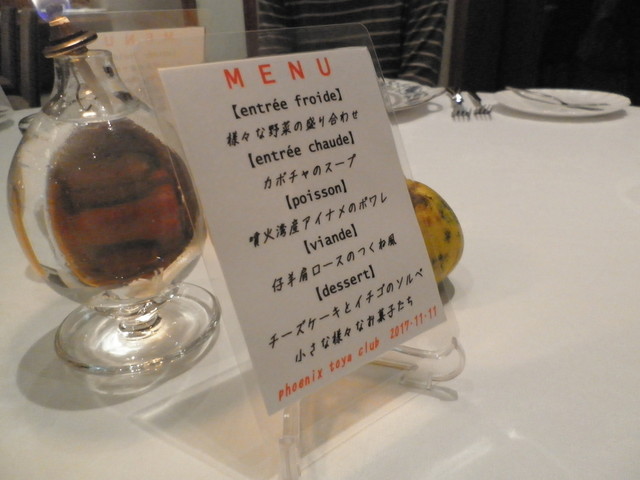 MENU
【entrée froide】
様々な野菜の盛り合わせ
【entrée chaude】
カボチャのスープ
【poisson】
噴火湾産アイナメのポワレ
【viande】
仔羊肩ロースのつくね風
【dessert】
チーズケーキとイチゴのソルベ
小さな様々なお菓子たち
phoenix toya club 2017.11.11